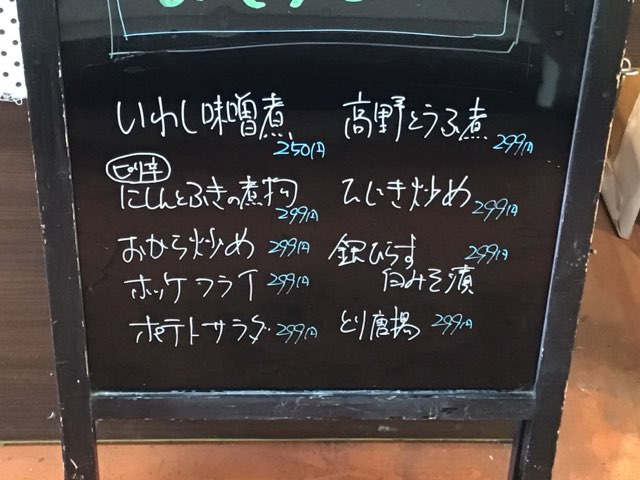 いわし味噌煮 250円
高野とうふ煮 299円
ピリ辛
にしんとふきの煮物 299円
ひじき炒め 299円
おから炒め 299円
銀ひらす 299円
白みそ漬
ホッケフライ 299円
ポテトサラダ 299円
とり唐揚 299円